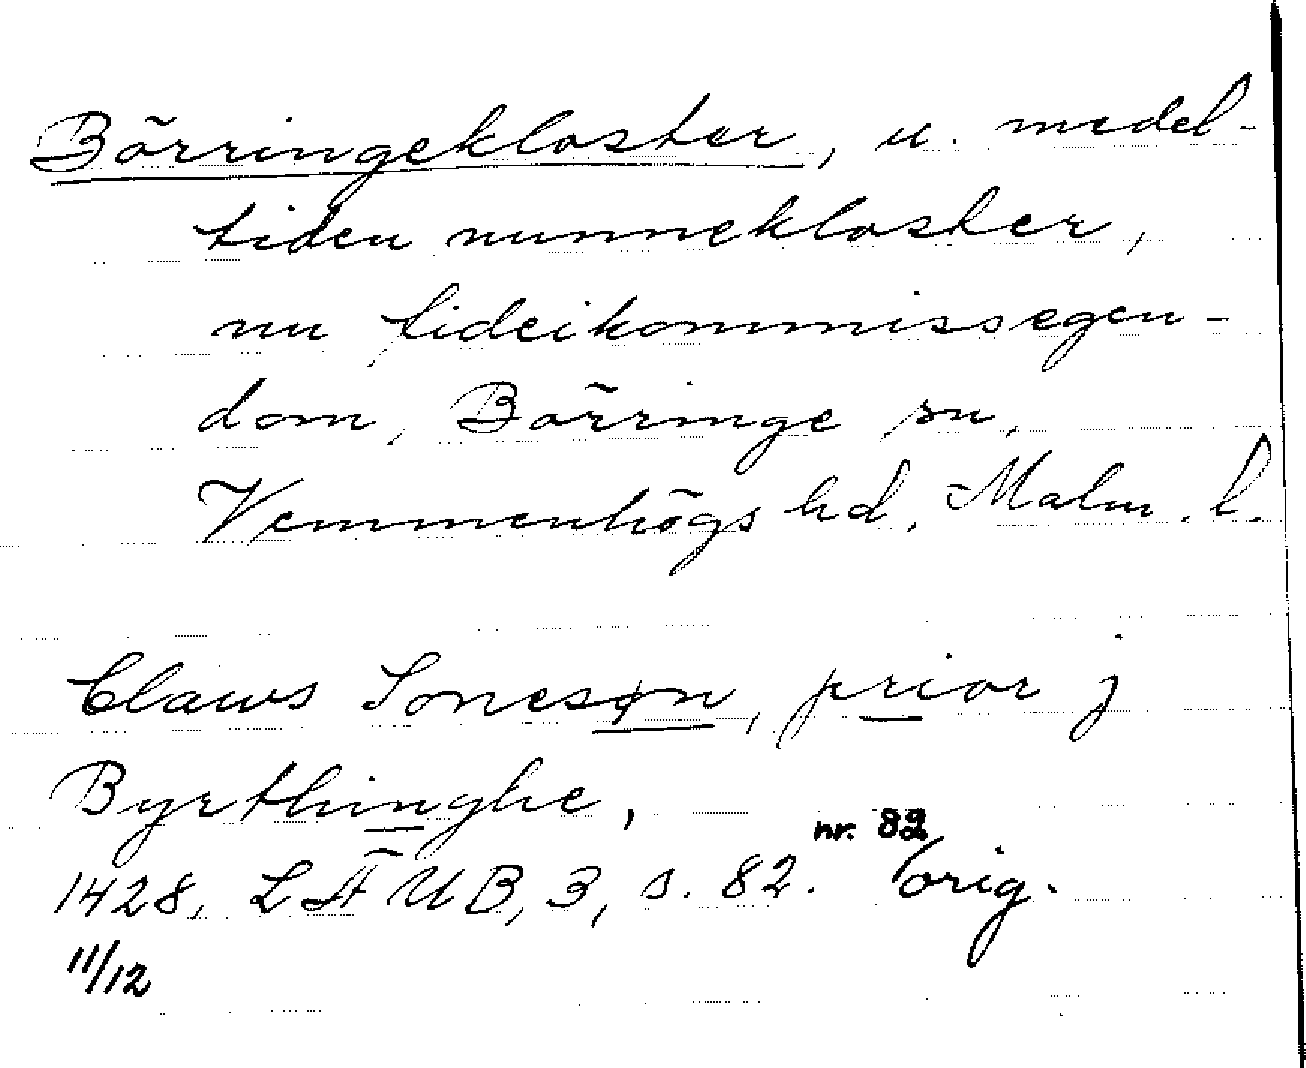 Börringekloster, u. medel-
tiden nunnekloster,
nu fideikommissegen-
dom, Börringe sn,
Vemmenhögs hd, Malm. l.
Claws Soneson, prior j
Byrthinghe,
nr. 82
1428, LÄUB, 3, s. 82. orig.
11/12